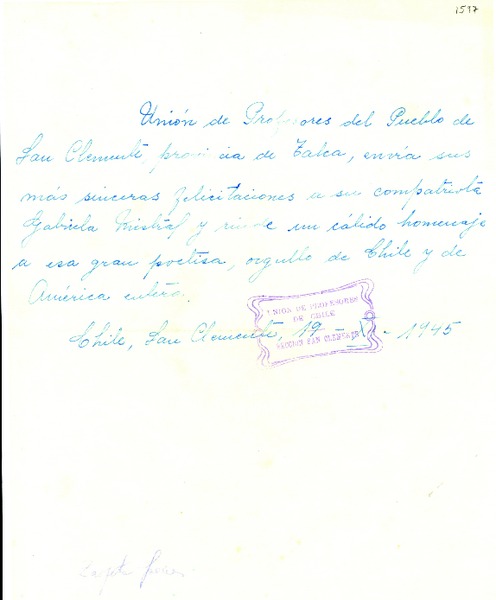 1517
Unión de Profesores del Pueblo de
San Clemente, provincia de Talca, envía sus
más sinceras felicitaciones a su compatriota
Gabriela Mistral y rinde un cálido homenaje
a esa gran poetisa, orgullo de Chile y de
América entera.
UNION DE PROFESORES
DE CHILE
SECCION SAN CLEMENTE
Chile, San Clemente, 19 - XI - 1945